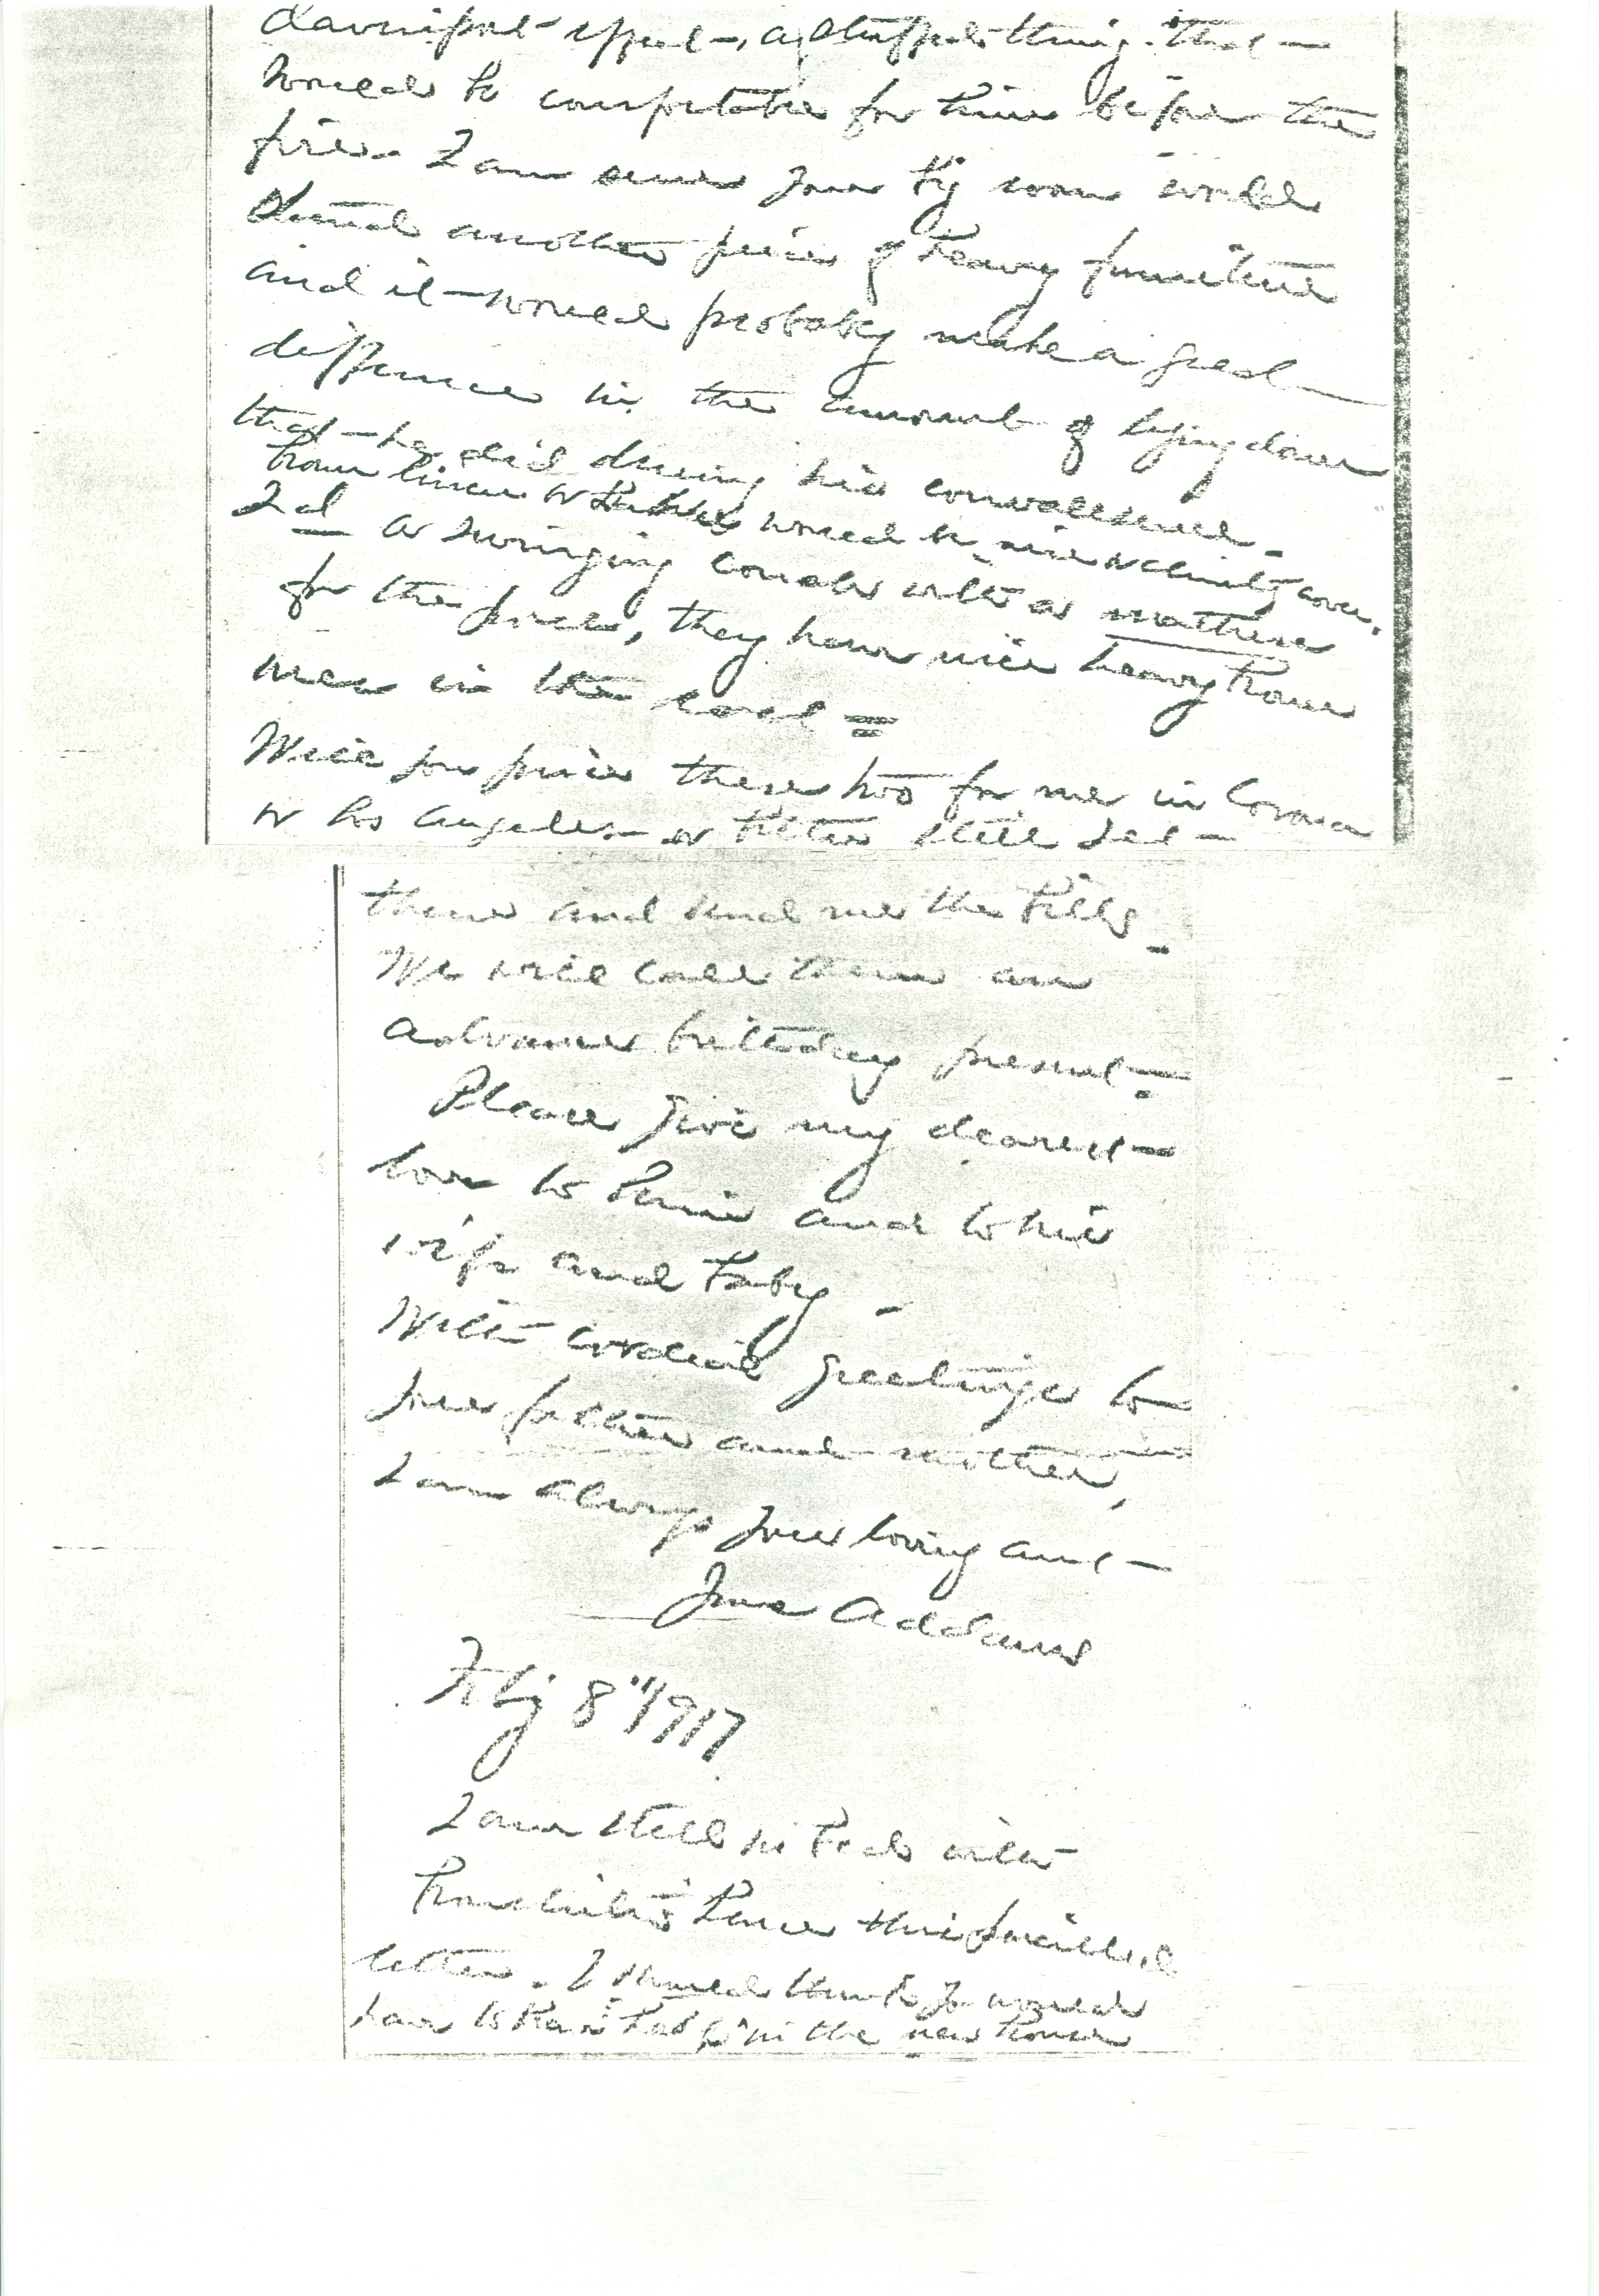 davenport effect, a stuffed thing that
would be comfortable for him before the
fire. I am sure your big room would
stand another piece of heavy furniture
and it would probably make a great
difference in the amount of lying down
that he did during his convalescence.
brown linen or would be nice chintz cover.
2d a swinging couch with a mattress
for the porch, they have nice heavy brown
ones in the east =
Will you price these two for me in Corona
or Los Angeles or better still get
them and send me the bills.
We will call them an
advance birthday present.
Please give my dearest
love to him and to his
wife and baby -
With cordial greetings to
your father and mother,
I am always your loving aunt
Jane Addams
Feb'y 8" 1917
I am still in bed with
bronchitis hence this pencilled
letter. I should think you would
have to the new house